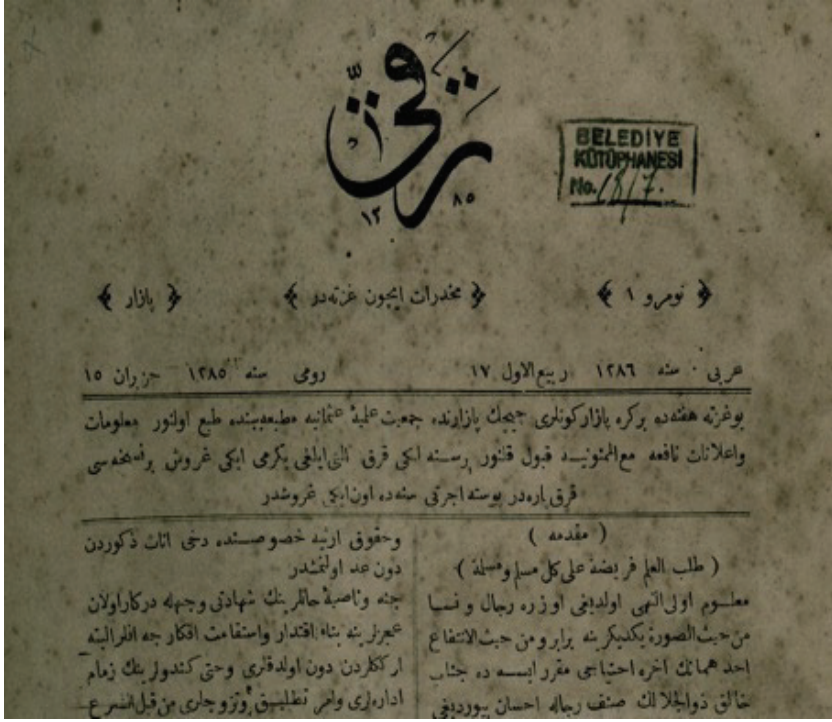 ترقی
١٢٨٥
BELEDİYE
KÜTÜPHANESİ
No. 18/7.
نومرو ١
مخدرات ایچون غزته‌در
پازار
عربی سنه ١٢٨٦ ربیع الاول ١٧
رومی سنه ١٢٨٥ حزیران ١٥
بو غزته هفته‌ده بر کره پازار کونلری چیچك پازارنده جمعیت علمیهٔ عثمانیه مطبعه‌سنده طبع اولنور معلومات
واعلانات نافعه مع الممنونیه قبول قلنور سنه لکی قرق التی ایلغی یکرمی ایکی غروش بر نسخه سی
قرق پاره‌در پوسته اجرتی سنه‌ده اون ایکی غروشدر
( مقدمه )
( طلب العلم فریضة علی كل مسلم ومسلمة )
معلوم اولی النهی اولدیغی اوزره رجال و نسا
من حیث الصورة یکدیکرینه برابر و من حیث الانتفاع
احد همانك اخره احتیاجی مقرر ایسه ده جناب
خالق ذوالجلالك صنف رجاله احسان بیوردیغی
وحقوق ارثیه خصوصنده دخی اناث ذکوردن
دون عد اولنمشدر
جثه وناصیهٔ حاللرینك شهادتی وجهله درکار اولان
عجزلرینه بناء اقتدار واستقامت افکارجه اقلر البته
ارککلردن دون اولدقلری وحتی کندولرینك زمام
اداره‌لری وامر تطلیق وتزوجلری من قبل الشرع